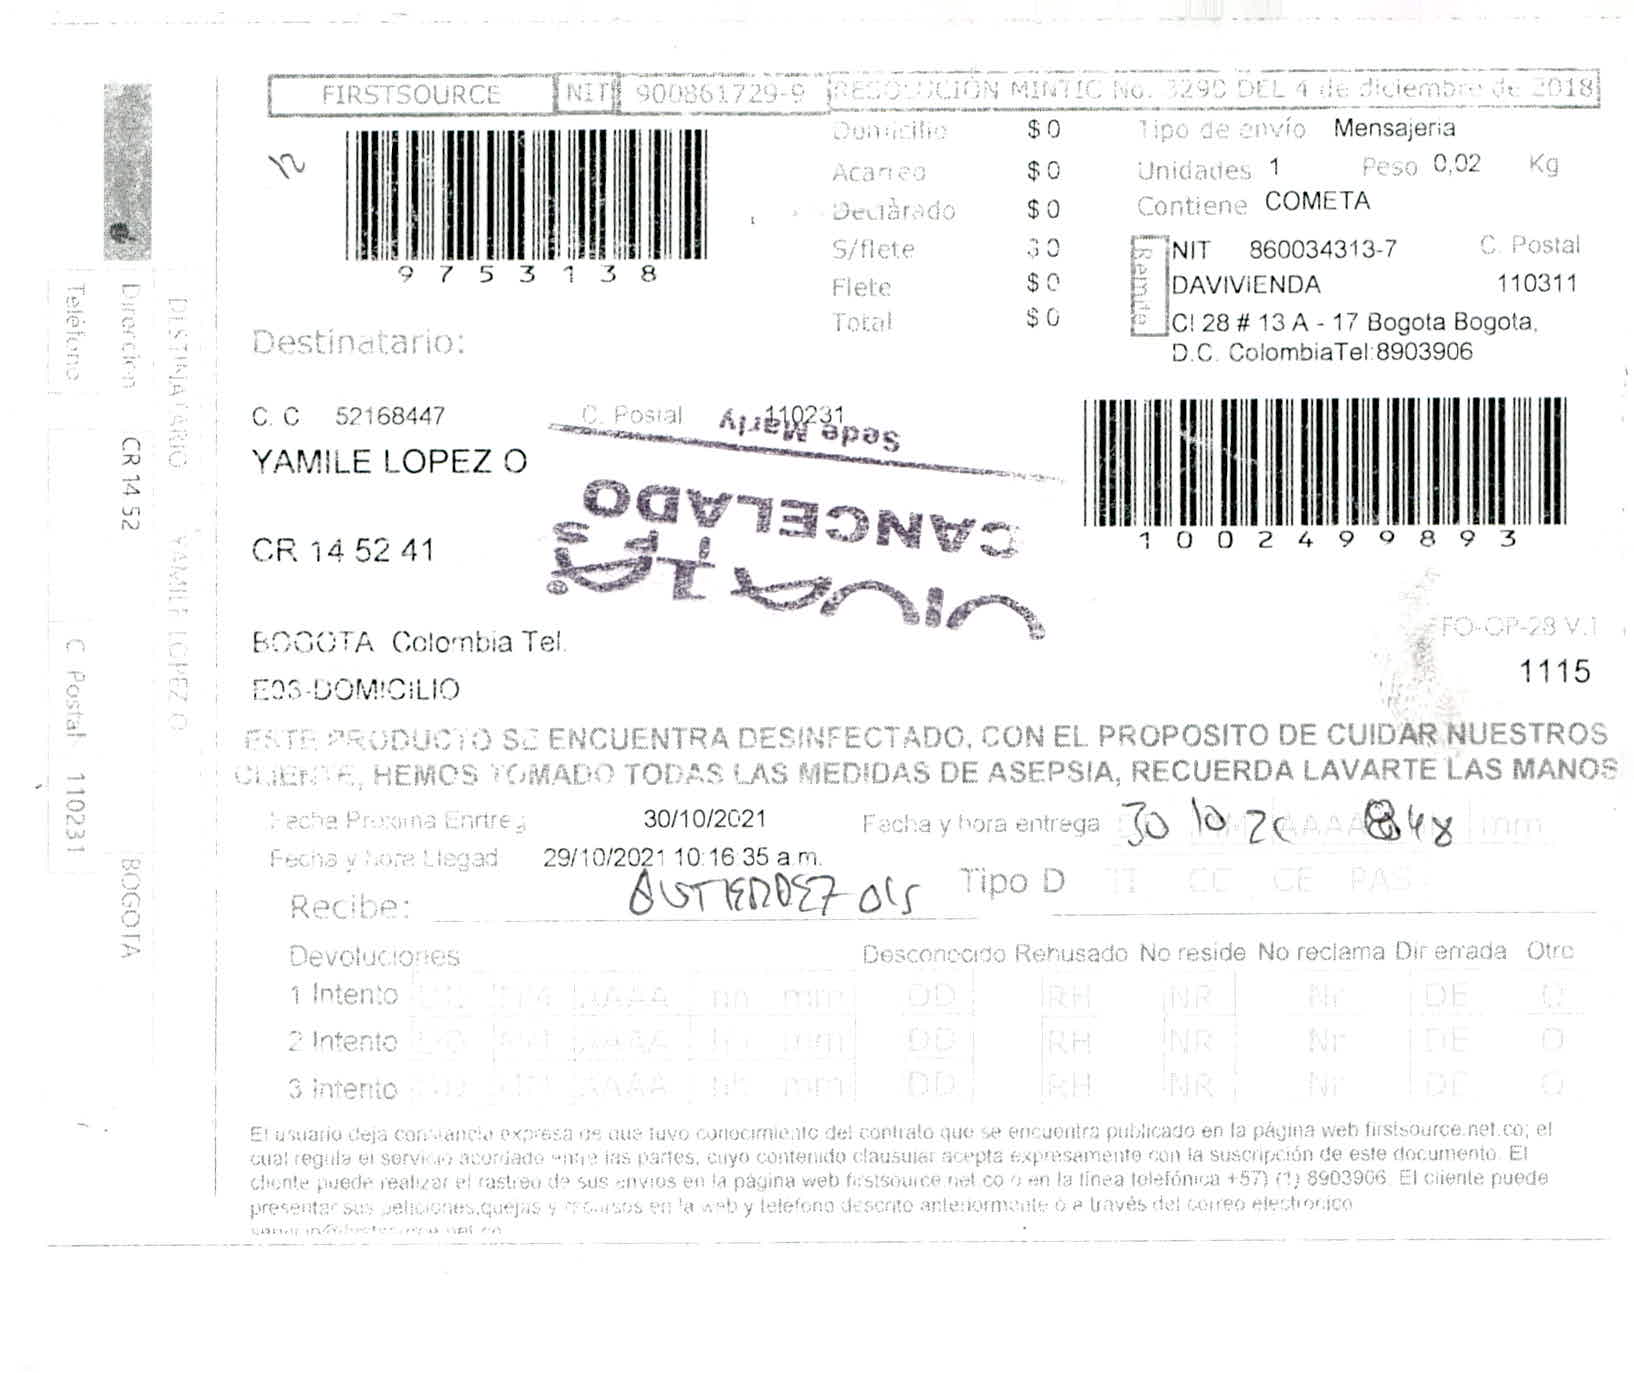 FIRSTSOURCE NIT 900861729-9 RESOLUCIÓN MINTIC No. 3290 DEL 4 de diciembre de 2018
12
9 7 5 3 1 3 8
Domicilio $ 0
Acarreo $ 0
Declarado $ 0
S/flete $ 0
Flete $ 0
Total $ 0
Tipo de envío Mensajeria
Unidades 1 Peso 0,02 Kg
Contiene COMETA
Remite
NIT 860034313-7 C. Postal
DAVIVIENDA 110311
Cl 28 # 13 A - 17 Bogota Bogota,
D.C. ColombiaTel:8903906
Destinatario:
C. C 52168447 C. Postal 110231
YAMILE LOPEZ O
CR 14 52 41
BOGOTA Colombia Tel.
E03-DOMICILIO
Sede Marly
CANCELADO
1 0 0 2 4 9 9 8 9 3
FO-OP-28 V.1
1115
ESTE PRODUCTO SE ENCUENTRA DESINFECTADO, CON EL PROPOSITO DE CUIDAR NUESTROS
CLIENTE, HEMOS TOMADO TODAS LAS MEDIDAS DE ASEPSIA, RECUERDA LAVARTE LAS MANOS
Fecha Proxima Enrtreg 30/10/2021
Fecha y hora entrega 30 10 8:48
Fecha y hora Llegad 29/10/2021 10:16:35 a.m.
Recibe:
Tipo D TI CC CE PAS
Devoluciones Desconocido Rehusado No reside No reclama Dir errada Otro
1 Intento DD MM AAAA hh mm DD RH NR Nr DE O
2 Intento DD MM AAAA hh mm DD RH NR Nr DE O
3 Intento DD MM AAAA hh mm DD RH NR Nr DE O
El usuario deja constancia expresa de que tuvo conocimiento del contrato que se encuentra publicado en la página web firstsource.net.co; el
cual regula el servicio acordado entre las partes, cuyo contenido clausular acepta expresamente con la suscripción de este documento. El
cliente puede realizar el rastreo de sus envios en la página web firstsource.net.co o en la línea telefónica +57) (1) 8903906. El cliente puede
presentar sus peticiones,quejas y recursos en la web y telefono descrito anteriormente o a través del correo electronico
DESTINATARIO YAMILE LOPEZ O
Direccion CR 14 52 BOGOTA
Teléfono C. Postal 110231